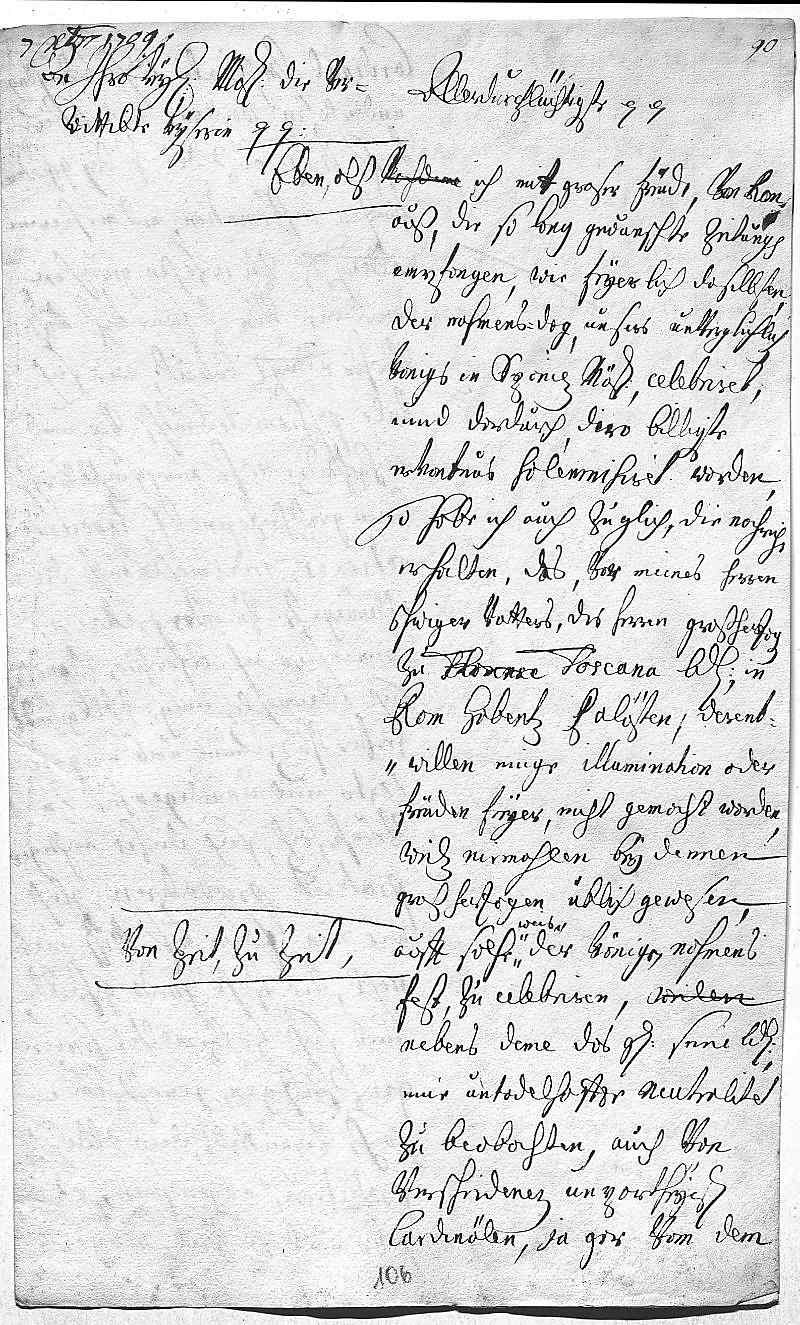 7 xbr 1709.
90
An Ihro Kayß. Maÿ: die Ver-
wittibte Kayserin p p:
Allerdurchlauchtigste p p
Eben, alß Nachdeme ich mit groser freude, Von Rom
auß, die so lang gewunschte Zeitung
empfangen, wie feÿerlich daselbsten,
der nahmens=dag, unsers unverglichlich
Königs in Spanien Maÿ:, celebriret,
unnd dardurch, dero billigste
solennisiret worden,
so habe ich auch Zuglich, die nachricht
erhalten, das, Vor meines herren
schwiger Vatters, des herren großhertzog
Zu Florence Toscana ld:, in
Rom habenten Palästen, derent-
"willen einige illumination oder
freuden feÿer, nicht gemacht worden,
weilen niemahlen beÿ dennen
großhertzogen üblich gewesen,
Von Zeit, zu Zeit,
auff solche weis der Königen nahmens
fest, zu celebriren,
nebens deme das gd: seine ld:
eine untadelhaffte neutralitet
Zu beobachten, auch Von
Verschidenen unpartheÿisch
Cardinälen, ja gar Von dem
106